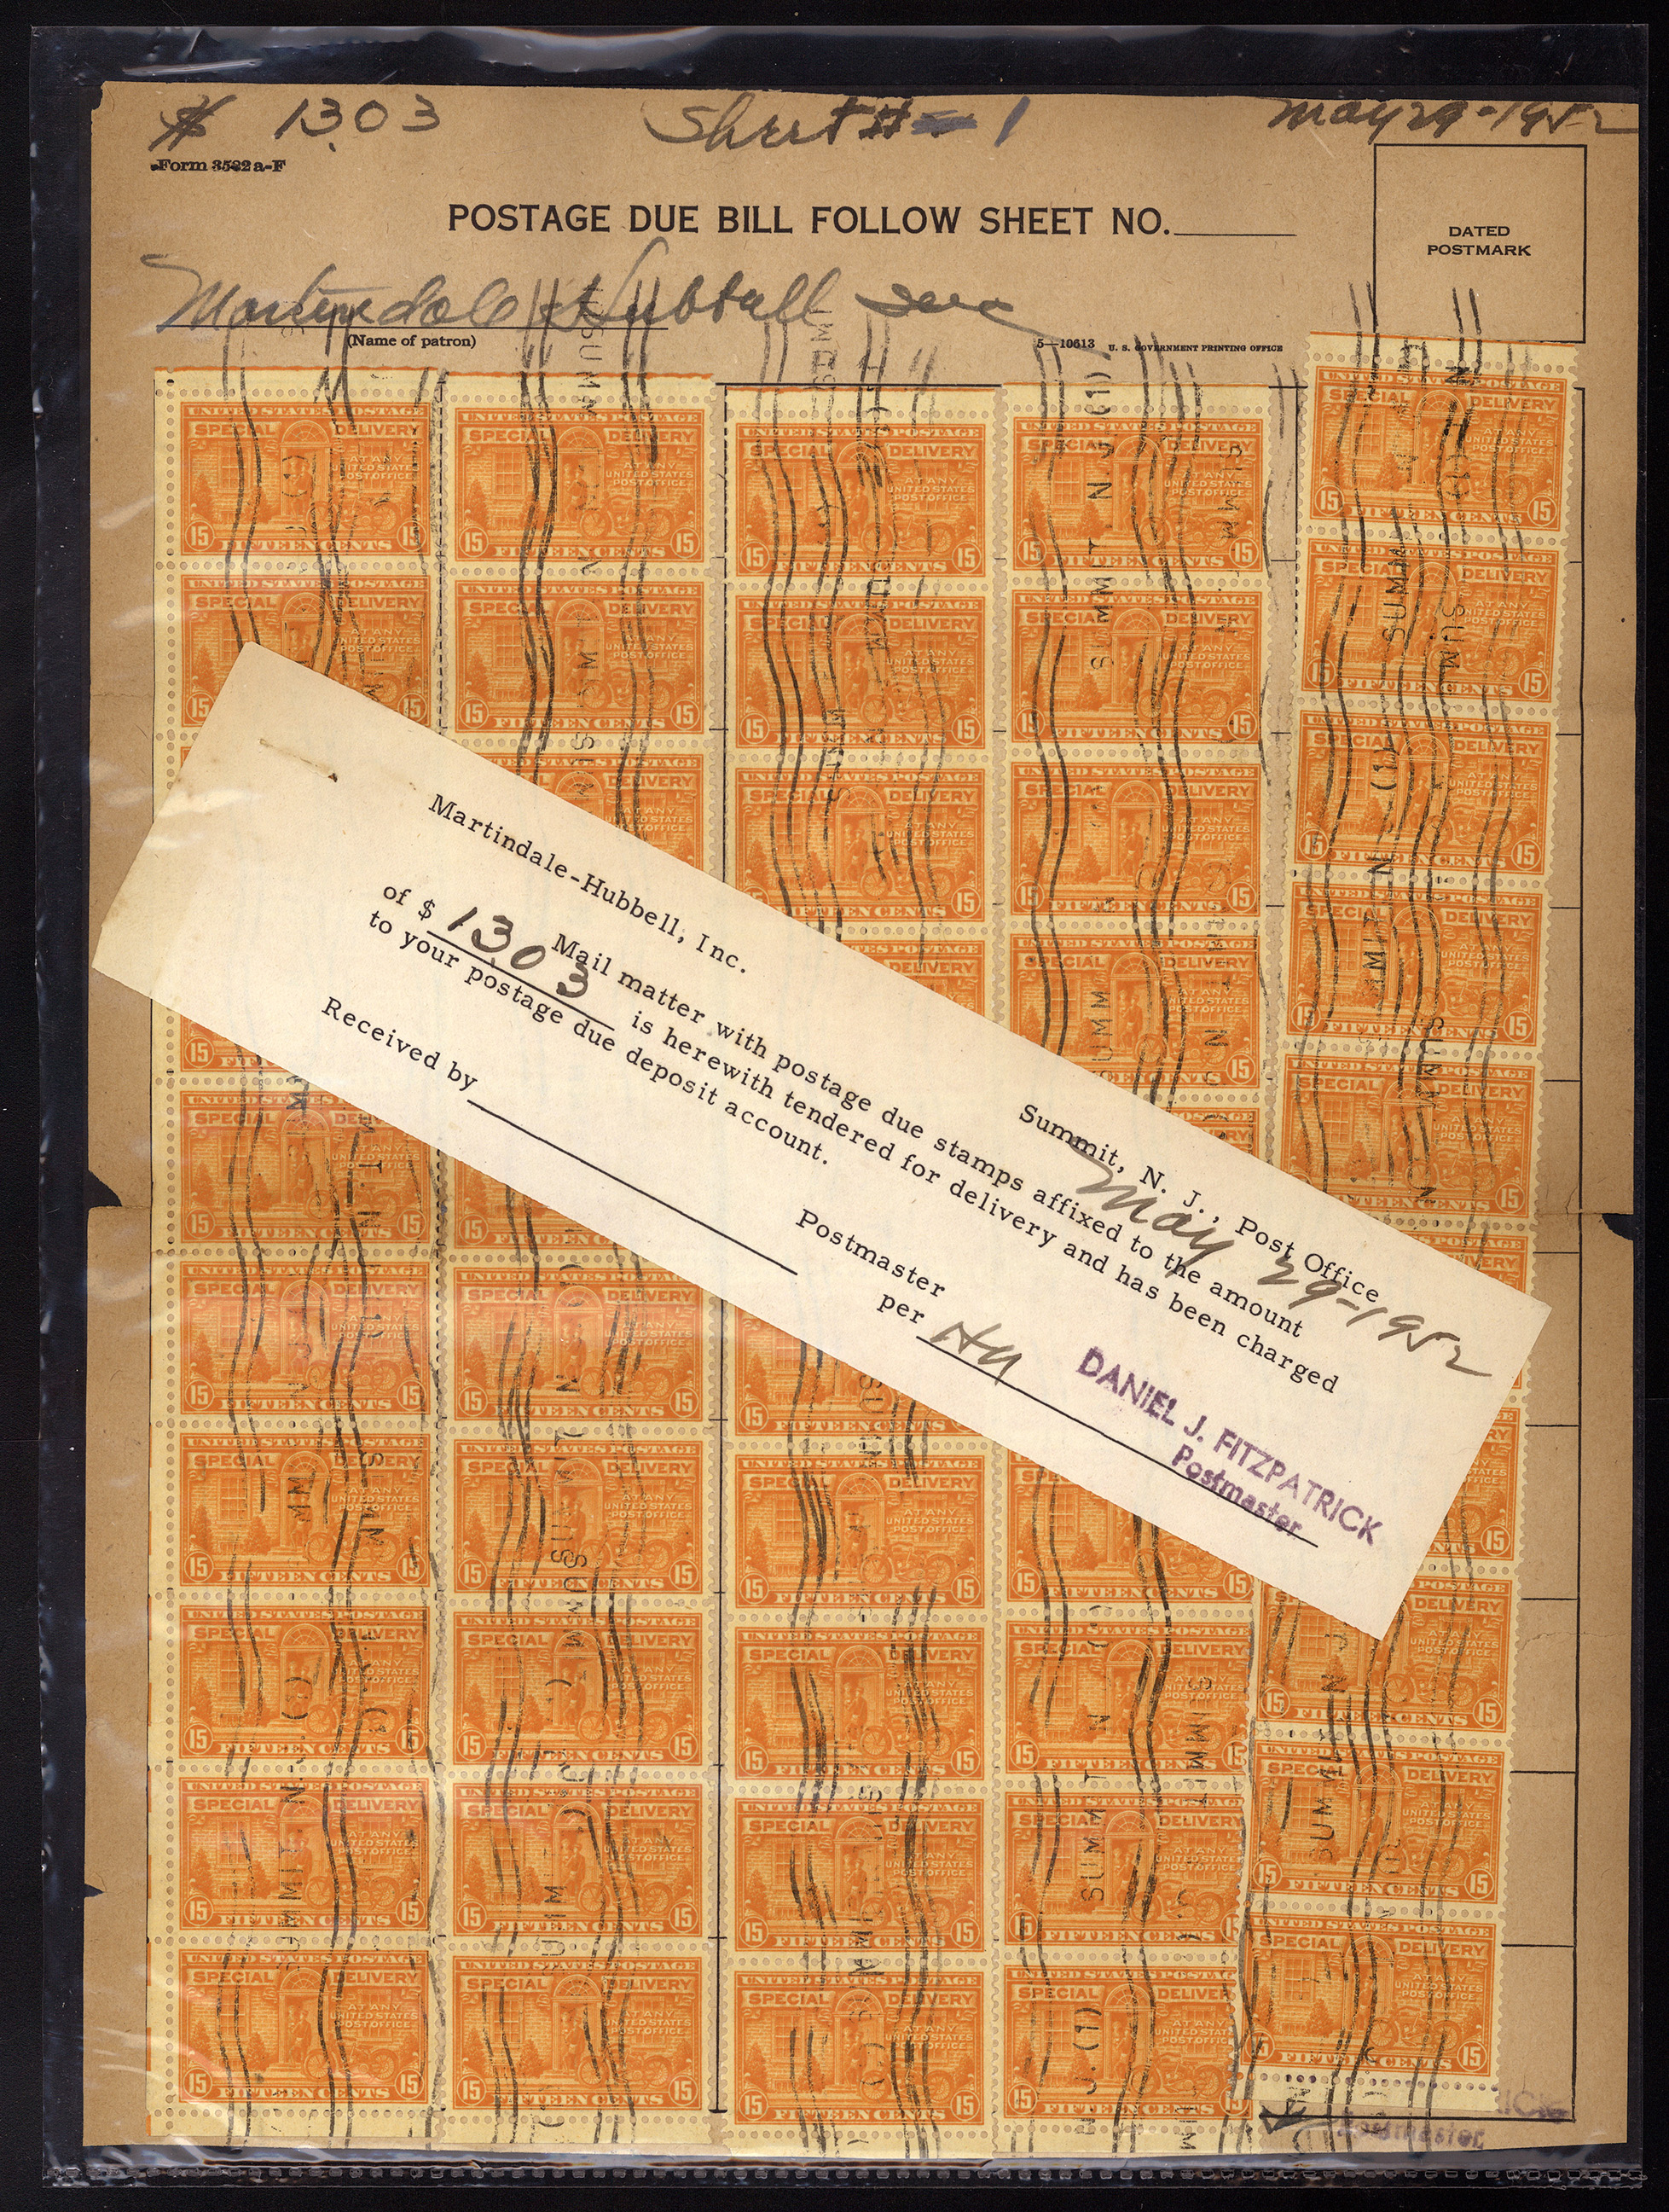 $ 13.03 Sheet # 1 May 29-1952
Form 3582 a-F
POSTAGE DUE BILL FOLLOW SHEET NO.
DATED
POSTMARK
Martindale Hubbell Inc
(Name of patron)
5—10613 U. S. GOVERNMENT PRINTING OFFICE
UNITED STATES POSTAGE
SPECIAL DELIVERY
AT ANY
UNITED STATES
POST OFFICE
15 FIFTEEN CENTS 15
SUMMIT N. J. (1)
Martindale-Hubbell, Inc.
Summit, N. J., Post Office
May 29-1952
Mail matter with postage due stamps affixed to the amount
of $ 13.03 is herewith tendered for delivery and has been charged
to your postage due deposit account.
Received by
Postmaster
per
DANIEL J. FITZPATRICK
Postmaster
ICK
Postmaster